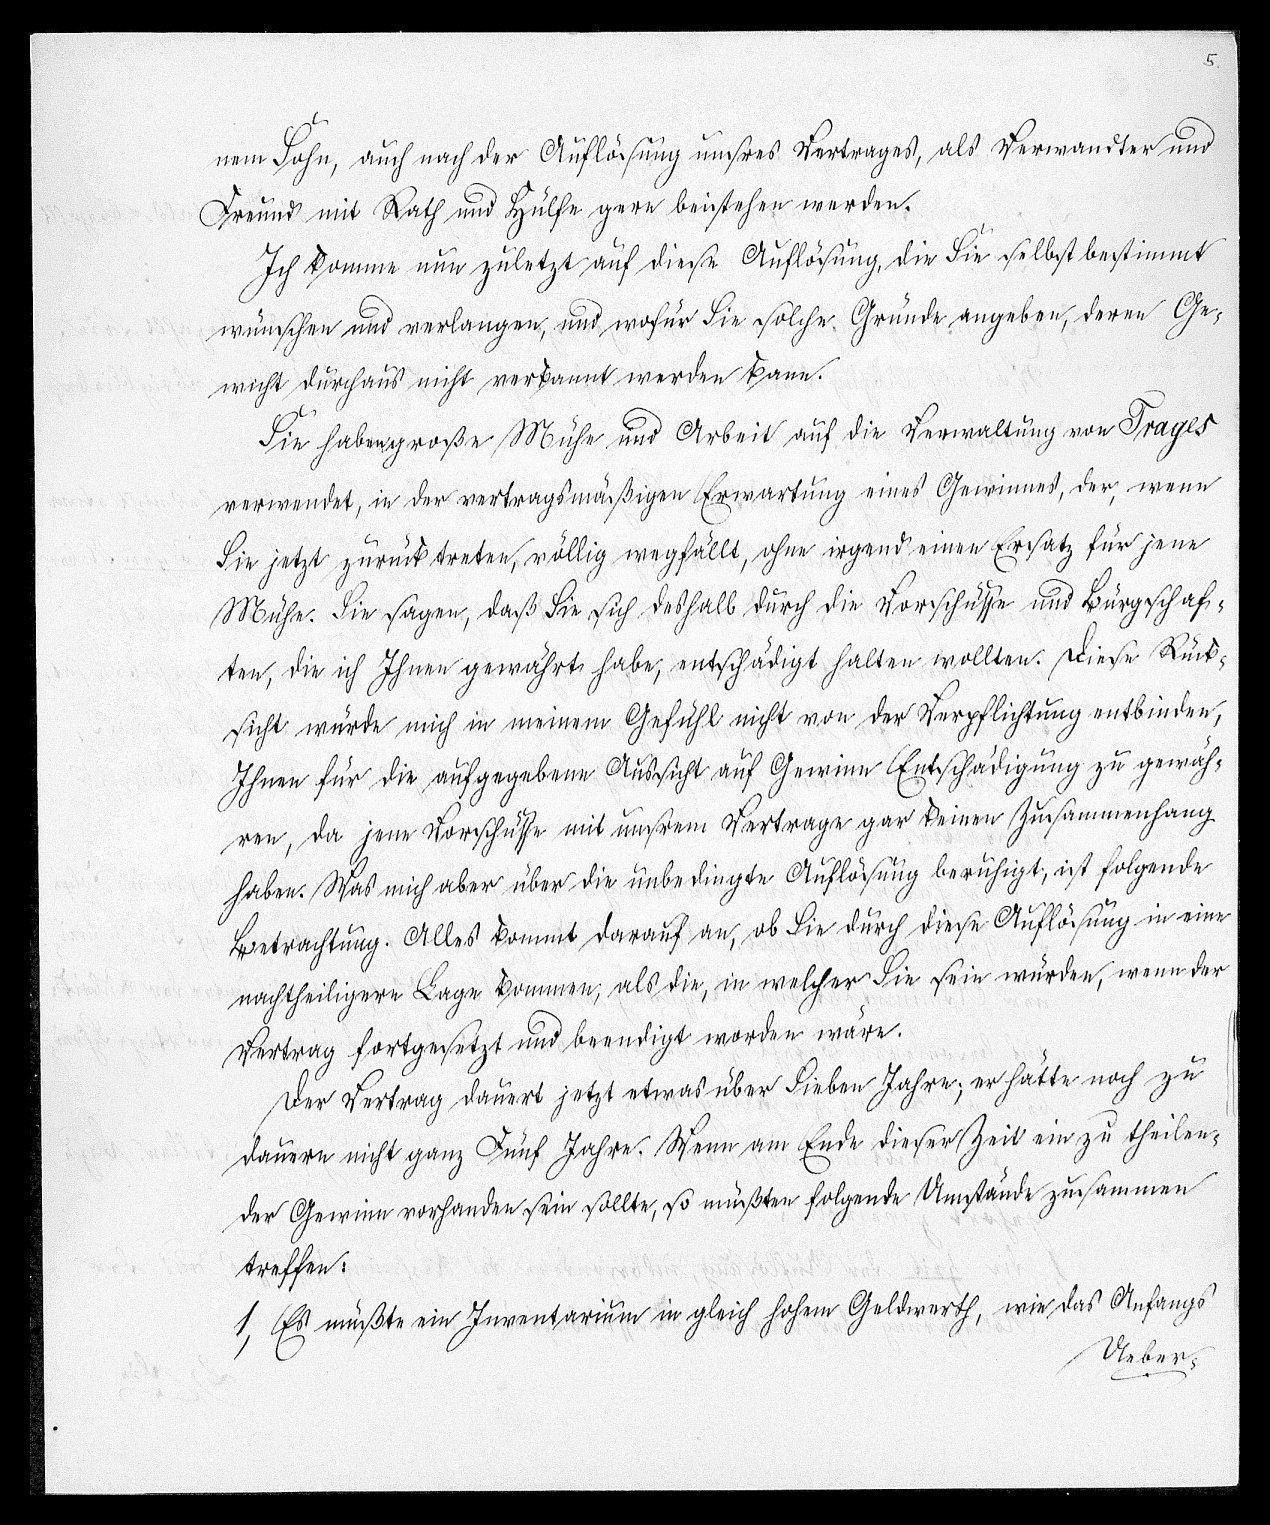 5.
nem Sohn, auch nach der Auflösung unsres Vertrages, als Verwandter und
Freund mit Rath und Hülfe gern beistehen werden.
Ich komme nun zuletzt auf diese Auflösung, die Sie selbst bestimmt
wünschen und verlangen, und wofür Sie solche Gründe angeben, deren Ge-
wicht durchaus nicht verkannt werden kann.
Sie haben große Mühe und Arbeit auf die Verwaltung von Trages
verwendet, in der vertragsmäßigen Erwartung eines Gewinnes, der, wenn
Sie jetzt zurück treten, völlig wegfällt, ohne irgend einen Ersatz für jene
Mühe. Sie sagen, daß Sie sich deshalb durch die Vorschüsse und Bürgschaf-
ten, die ich Ihnen gewährt habe, entschädigt halten wollten. Diese Rück-
sicht würde mich in meinem Gefühl nicht von der Verpflichtung entbinden,
Ihnen für die aufgegebene Aussicht auf Gewinn Entschädigung zu gewäh-
ren, da jene Vorschüsse mit unsrem Vertrage gar keinen Zusammenhang
haben. Was mich aber über die unbedingte Auflösung beruhigt, ist folgende
Betrachtung. Alles kommt darauf an, ob Sie durch diese Auflösung in eine
nachtheiligere Lage kommen, als die, in welcher Sie sein würden, wenn der
Vertrag fortgesetzt und beendigt worden wäre.
Der Vertrag dauert jetzt etwas über Sieben Jahre; er hätte noch zu
dauern nicht ganz Fünf Jahre. Wenn am Ende dieser Zeit ein zu theilen-
der Gewinn vorhanden sein sollte, so müßten folgende Umstände zusammen
treffen:
1, Es müßte ein Inventarium in gleich hohem Geldwerth, wie das Anfangs
Ueber-